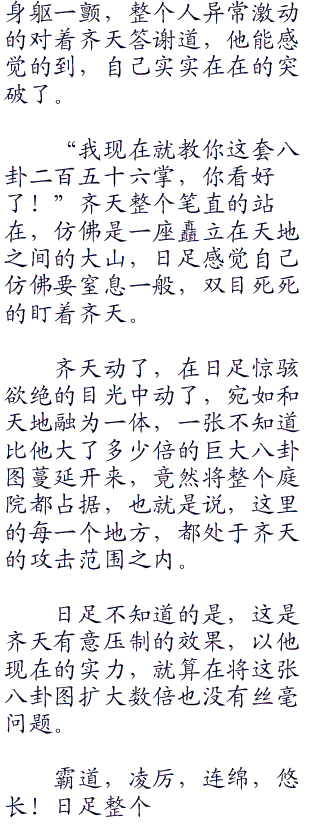 身躯一颤，整个人异常激动
的对着齐天答谢道，他能感
觉的到，自己实实在在的突
破了。
“我现在就教你这套八
卦二百五十六掌，你看好
了！”齐天整个笔直的站
在，仿佛是一座矗立在天地
之间的大山，日足感觉自己
仿佛要窒息一般，双目死死
的盯着齐天。
齐天动了，在日足惊骇
欲绝的目光中动了，宛如和
天地融为一体，一张不知道
比他大了多少倍的巨大八卦
图蔓延开来，竟然将整个庭
院都占据，也就是说，这里
的每一个地方，都处于齐天
的攻击范围之内。
日足不知道的是，这是
齐天有意压制的效果，以他
现在的实力，就算在将这张
八卦图扩大数倍也没有丝毫
问题。
霸道，凌厉，连绵，悠
长！日足整个